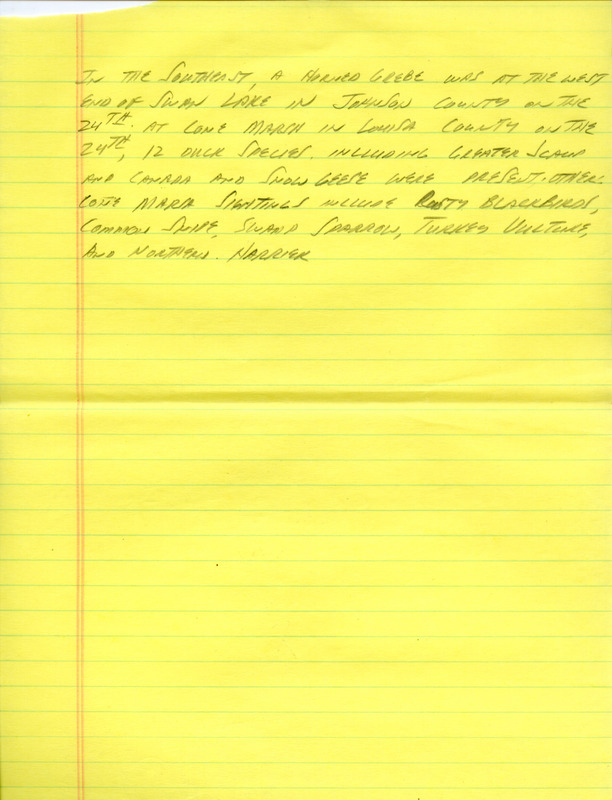 IN THE SOUTHEAST, A HORNED GREBE WAS AT THE WEST
END OF SWAN LAKE IN JOHNSON COUNTY ON THE
24TH. AT CONE MARSH IN LOUISA COUNTY ON THE
24TH, 12 DUCK SPECIES. INCLUDING GREATER SCAUP
AND CANADA AND SNOW GEESE WERE PRESENT. OTHER
CONE MARSH SIGHTINGS INCLUDE RUSTY BLACKBIRDS,
COMMON SNIPE, SWAMP SPARROW, TURKEY VULTURE,
AND NORTHERN. HARRIER